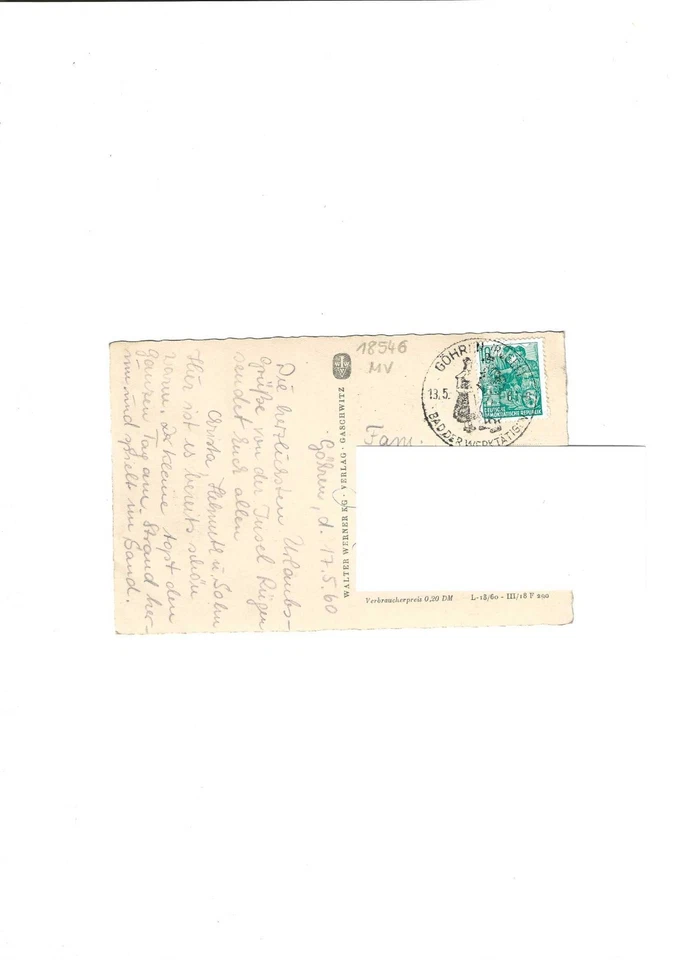 Göhren, d. 17.5.60
Die herzlichsten Urlaubs-
grüße von der Insel Rügen
sendet Euch allen
Christa Helmuth u. Sohn
Hier ist es bereits schön
warm. Der kleine topst den
ganzen Tag am Strand her-
um und spielt im Sand.
WALTER WERNER KG · VERLAG · GASCHWITZ
18546
MV
GÖHREN
13.5.
BAD DER WERKTÄTIGEN
DEUTSCHE
DEMOKRATISCHE REPUBLIK
5
Fam.
Verbraucherpreis 0,20 DM L-18/60 - III/18 F 290